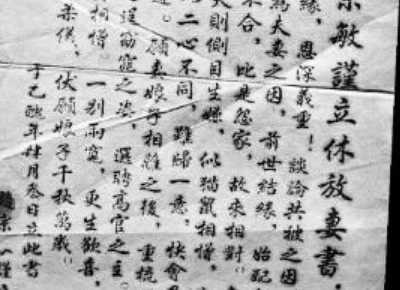 宗敏謹立休放妻書.
緣,恩深義重!談論共被之因
為夫妻之因,前世結緣,始配
來合,此是怨家,故來相對。
夫則側目生嫌,似貓鼠相憎,
二心不同,難歸一意,快會
。願妻娘子相離之後,重梳
逞窈窕之姿,選聘高官之主。
相憎。一別兩寬,更生歡喜,
柔儀,伏願娘子千秋萬歲。
于乙酉年肆月叁日立此書